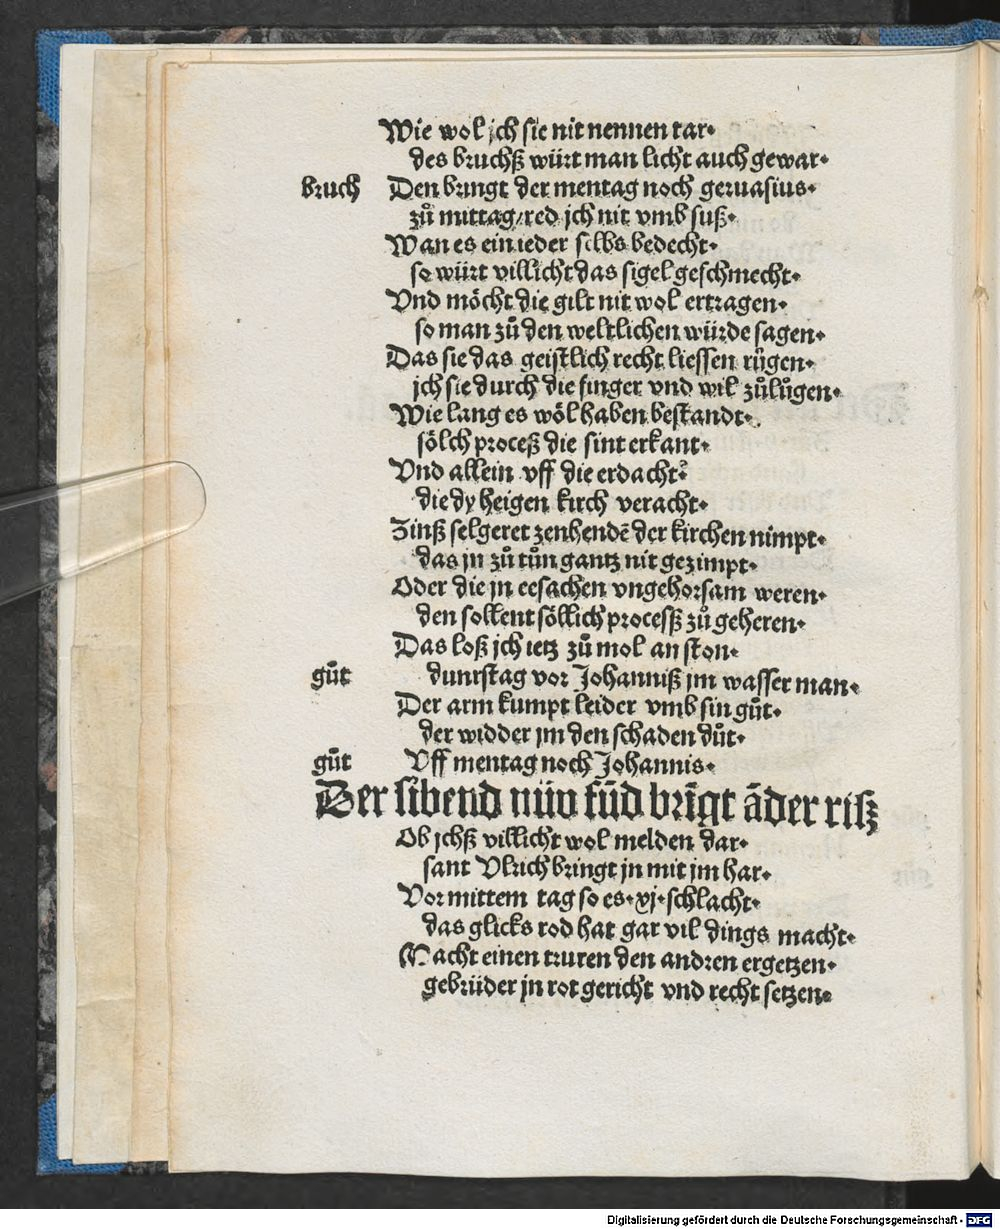 Wie wol jch sie nit nennen tar·
des bruchß würt man licht auch gewar·
bruch Den bringt der mentag noch geruasius·
zů mittag/red jch nit vmb suß·
Wan es ein ieder selbs bedecht·
so würt villicht das sigel geschmecht·
Vnd möcht die gilt nit wol ertragen·
so man zů den weltlichen würde sagen·
Das sie das geistlich recht liessen růgen·
jch sie durch die finger vnd wil zůlůgen·
Wie lang es wöl haben bestandt·
sölch proceß die sint erkant·
Vnd allein vff die erdacht·
die dy heigen kirch veracht·
Zinß selgeret zenhendē der kirchen nimpt·
das jn zů tůn gantz nit gezimpt·
Oder die jn eesachen vngehorsam weren·
den sollent söllich processz zů geheren·
Das loß jch ietz zů mol an ston·
gůt dunrstag vor Johanniß jm wasser man·
Der arm kumpt leider vmb sin gůt·
der widder jm den schaden důt·
gůt Vff mentag noch Johannis·
Der sibend nüv fūd brīgt āder risz
Ob jchß villicht wol melden dar·
sant Vlrich bringt jn mit jm har·
Vor mittem tag so es·xj·schlacht·
das glicks rod hat gar vil dings macht·
Macht einen truren den andren ergetzen·
gebrüder jn rot gericht vnd recht setzen·
Digitalisierung gefördert durch die Deutsche Forschungsgemeinschaft - DFG